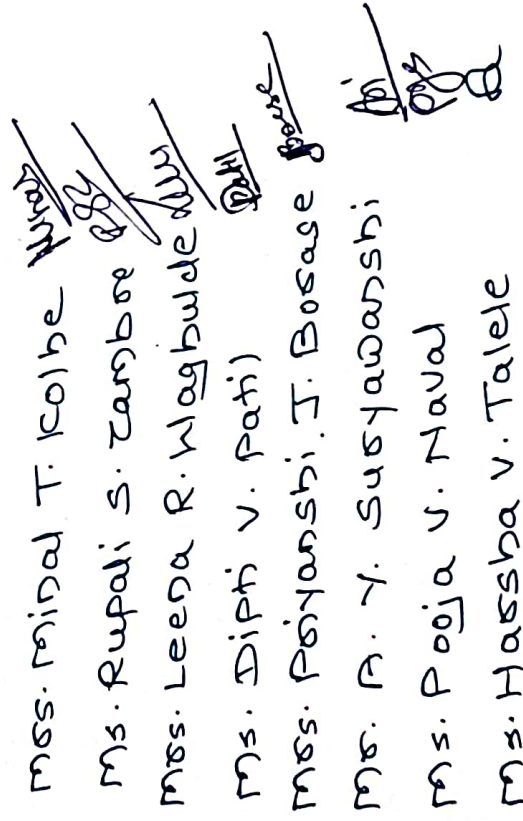 Mrs. Minal T. Kolhe
Ms. Rupali S. Zambre
Mrs. Leena R. Waghulde
Ms. Dipti V. Patil Patil
Mrs. Priyanshi. J. Borase Borase
Mr. A. Y. Suryawanshi
Ms. Pooja V. Naval
Ms. Harsha V. Talele